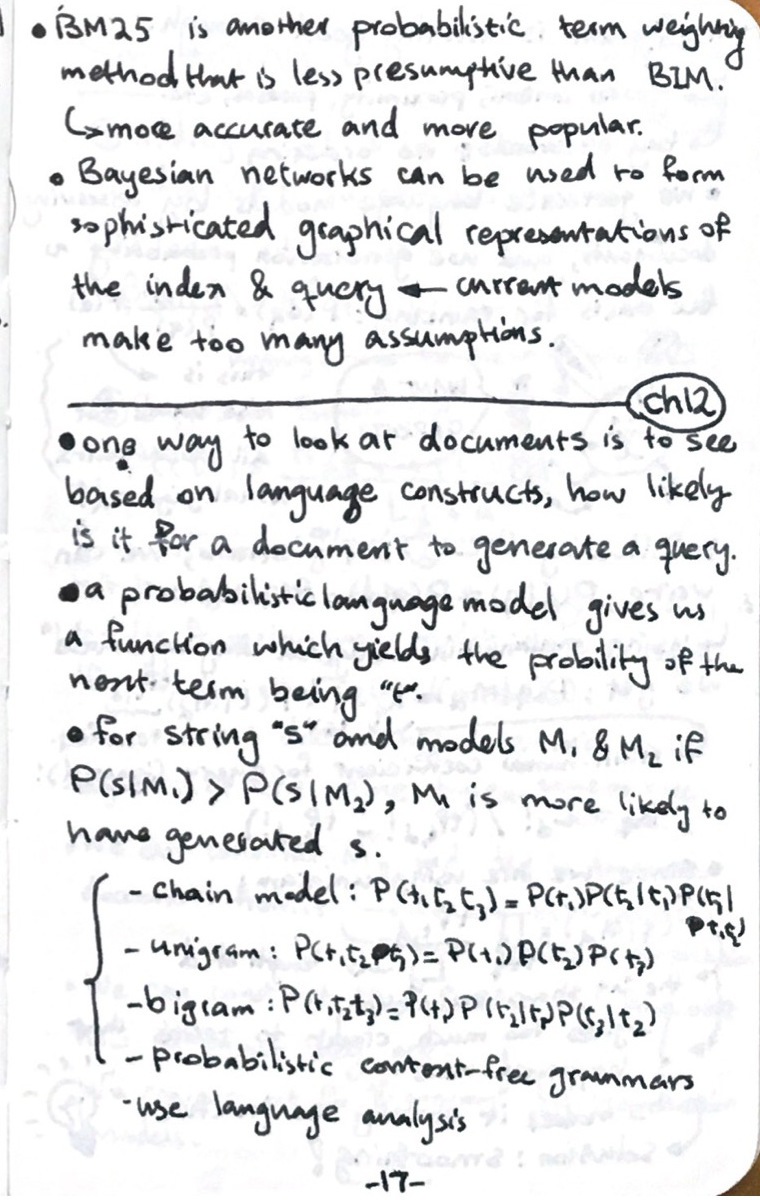 • BM25 is another probabilistic term weighting
method that is less presumptive than BIM.
↳ more accurate and more popular.
• Bayesian networks can be used to form
sophisticated graphical representations of
the index & query ← current models
make too many assumptions.
ch12
• one way to look at documents is to see
based on language constructs, how likely
is it for a document to generate a query.
• a probabilistic language model gives us
a function which yields the probility of the
next term being "t".
• for string "s" and models M₁ & M₂ if
P(s|M₁) > P(s|M₂), M₁ is more likely to
have generated s.
- chain model: P(t₁t₂t₃) = P(t₁)P(t₂|t₁)P(t₃|
t₁t₂)
- unigram: P(t₁t₂t₃) = P(t₁)P(t₂)P(t₃)
- bigram: P(t₁t₂t₃) = P(t₁)P(t₂|t₁)P(t₃|t₂)
- probabilistic context-free grammars
- use language analysis
-17-